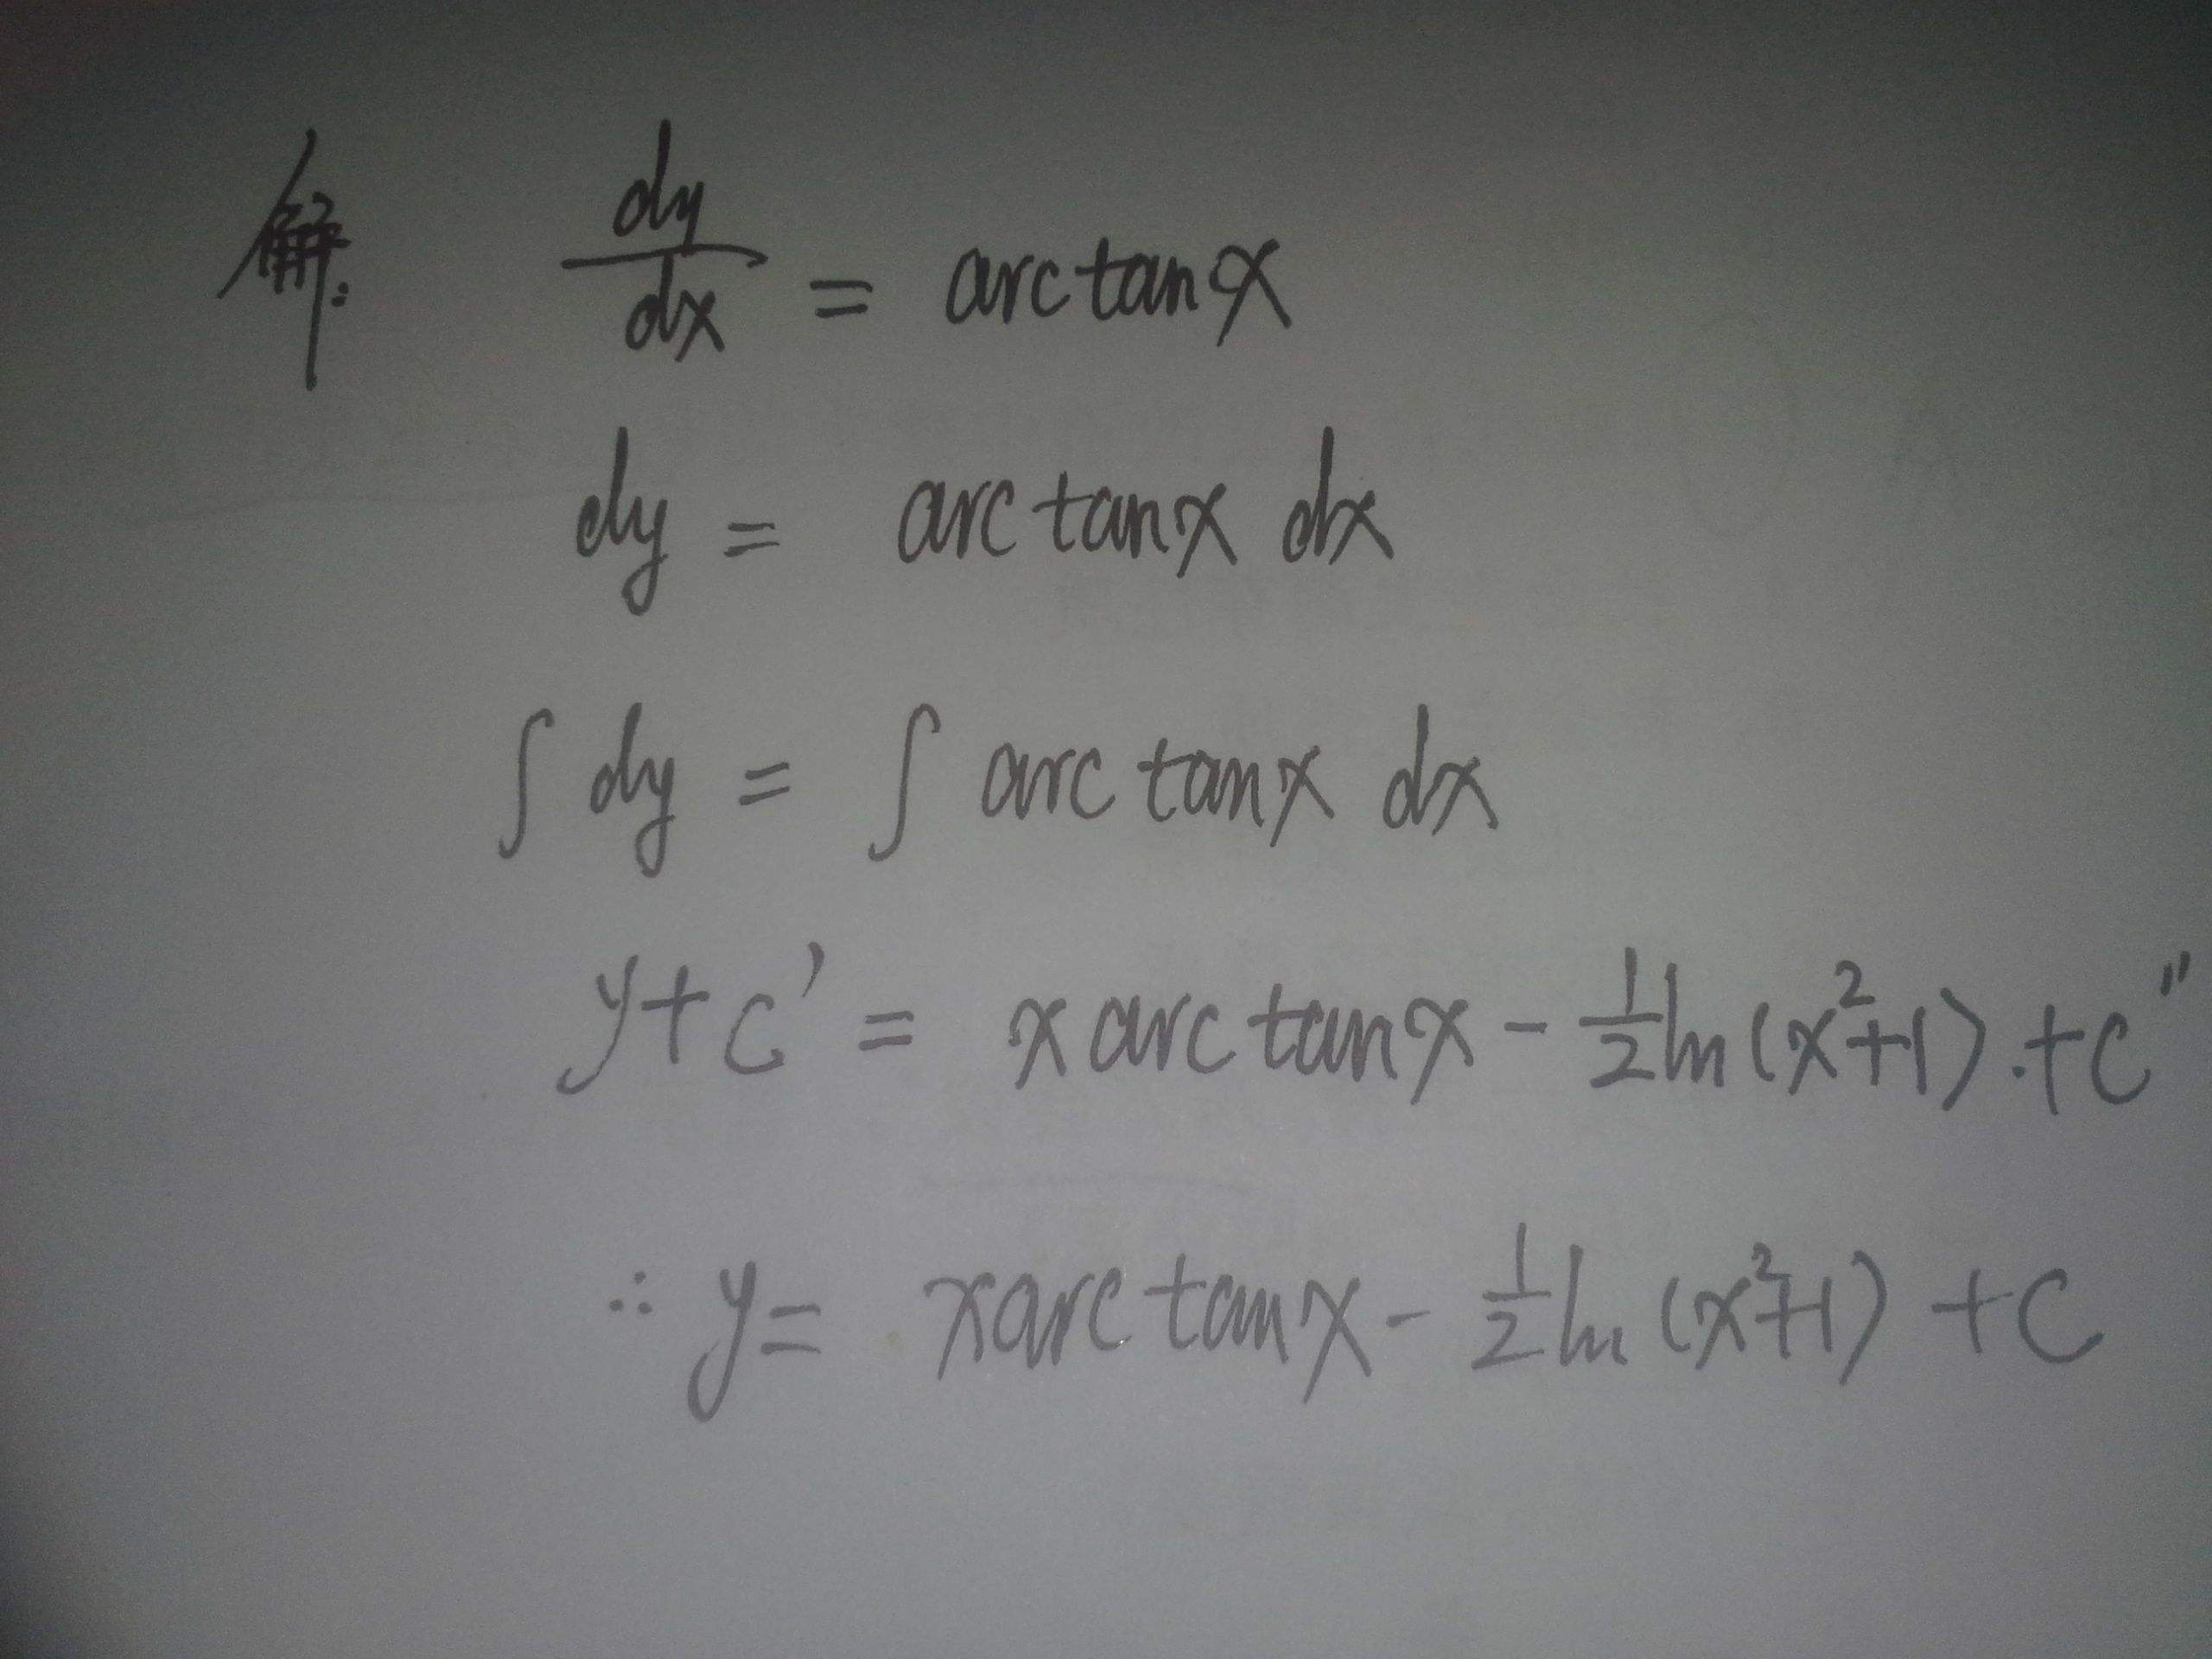 解: dy/dx = arctanx
dy = arctanx dx
∫ dy = ∫ arctanx dx
y+c' = x arctanx - 1/2 ln(x²+1).+c''
∴ y= xarctanx - 1/2 ln(x²+1) +c